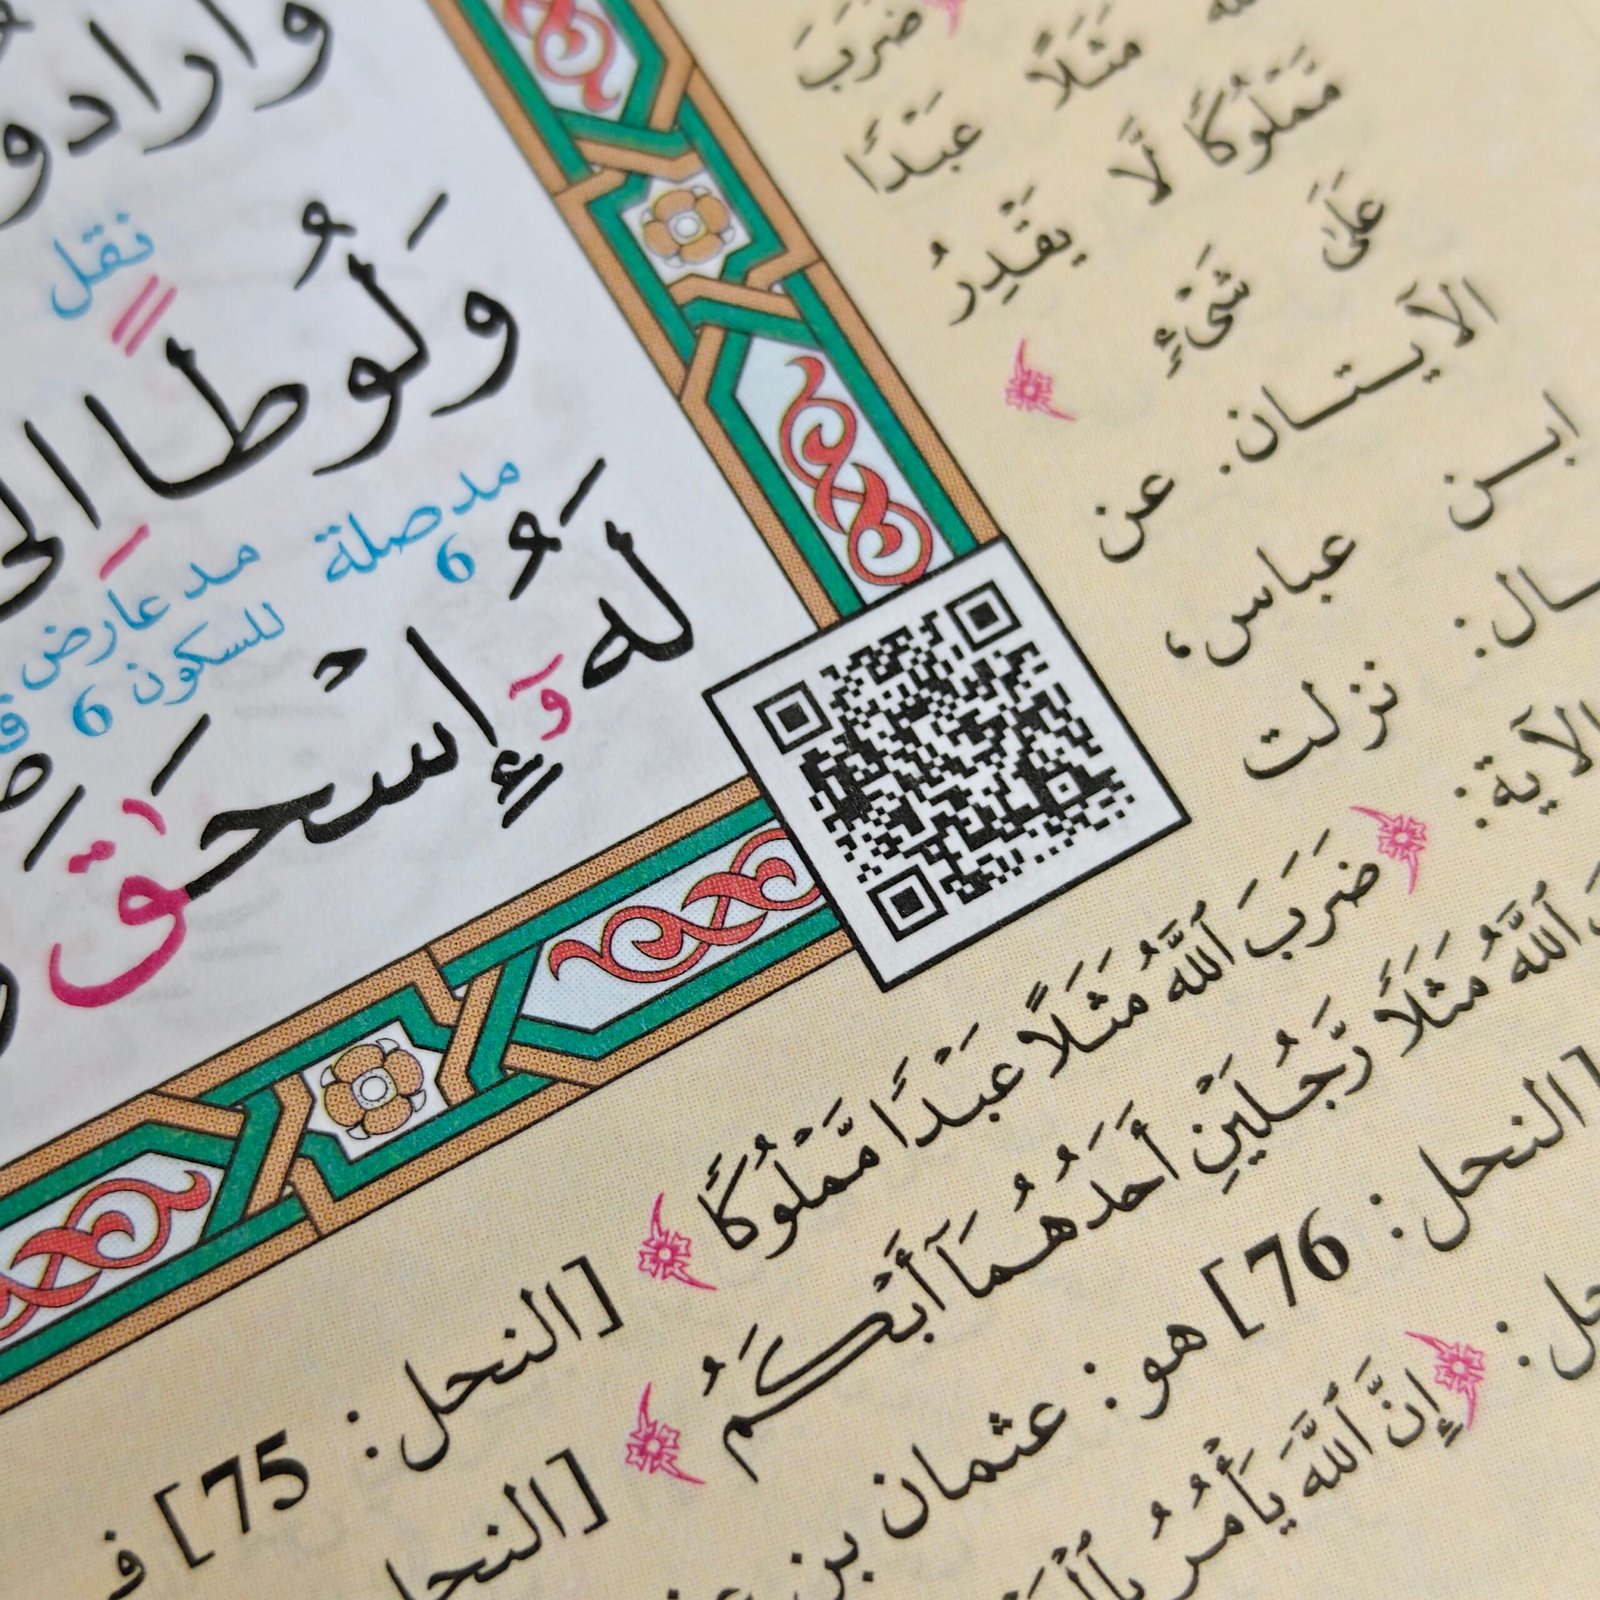 وَأَرَادُو
نقل
وَلُوطًا اِلَى
مد صلة
6
مد عارض
للسكون 6
لَهُۥٓ إِسْحَٰقَ
ضَرَبَ
مَثَلًا عَبْدًا
مَّمْلُوكًا لَّا يَقْدِرُ
عَلَىٰ شَىْءٍ
الآيتان. عن
ابن عباس،
ـال: نزلت
الآية: ضَرَبَ ٱللَّهُ مَثَلًا عَبْدًا مَّمْلُوكًا [النحل: 75] فـ
ٱللَّهُ مَثَلًا رَّجُلَيْنِ أَحَدُهُمَآ أَبْكَمُ [النحل
[النحل: 76] هو: عثمان بن
ـحل: إِنَّ ٱللَّهَ يَأْمُرُ